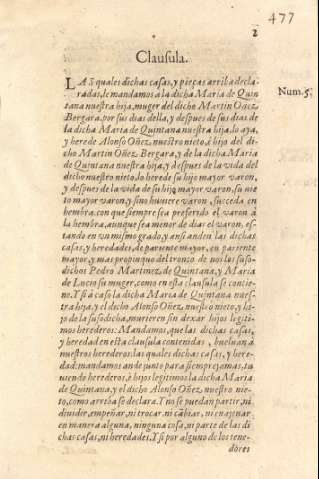 477
2
Clausula.
Num. 5.
LAS quales dichas casas, y pieças arriba decla-
radas, le mandamos à la dicha Maria de Quin
tana nuestra hija, muger del dicho Martin Oñez
Bergara, por sus dias della, y despues de sus dias de
la dicha Maria de Quintana nuestra hija, lo aya,
y herede Alonso Oñez nuestro nieto, è hijo del di-
cho Martin Oñez Bergara, y de la dicha Maria
de Quintana nuestra hija, y despues de la vida del
dicho nuestro nieto, lo herede su hijo mayor varon,
y despues de la vida de su hijo mayor varon, su nie
to mayor varon, y sino huuiere varon, suceda en
hembra, con que siempre sea preferido el varon à
la hembra, aunque sea menor de dias el varon, es-
tando en vn mismo grado, y ansi anden las dichas
casas, y heredades, de pariente mayor, en pariente
mayor, y mas propinquo del tronco de nos los suso-
dichos Pedro Martinez de Quintana, y Maria
de Lucio su muger, como en esta clausula se contie-
ne. Y si à caso la dicha Maria de Quintana nues-
tra hija, y el dicho Alonso Oñez, nuestro nieto, y hi-
jo de la susodicha, murieren sin dexar hijos legiti-
mos herederos: Mandamos, que las dichas casas,
y heredad en esta clausula contenidas, bueluan à
nuestros herederos: las quales dichas casas, y here-
dad: mandamos ande junto para siempre jamas, te
niendo herederos, è hijos legitimos la dicha Maria
de Quintana, y el dicho Alonso Oñez, nuestro nie-
to, como arriba se declara. Y no se puedan partir, ni
diuidir, empeñar, ni trocar, ni cãbiar, ni enagenar
en manera alguna, ninguna cosa, ni parte de las di
chas casas, ni heredades. Y si por alguno de los tene-
dores